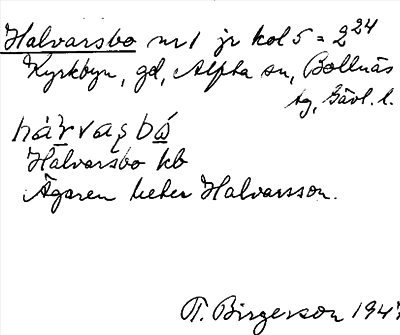 Halvarsbo nr 1 jr kol 5 = 2²⁴
Kyrkbyn, gd, Alfta sn, Bollnäs
tg, Gävl. l.
hárvasbå̱
Halvarsbo kb
Ägaren heter Halvarsson.
T. Birgerson 194